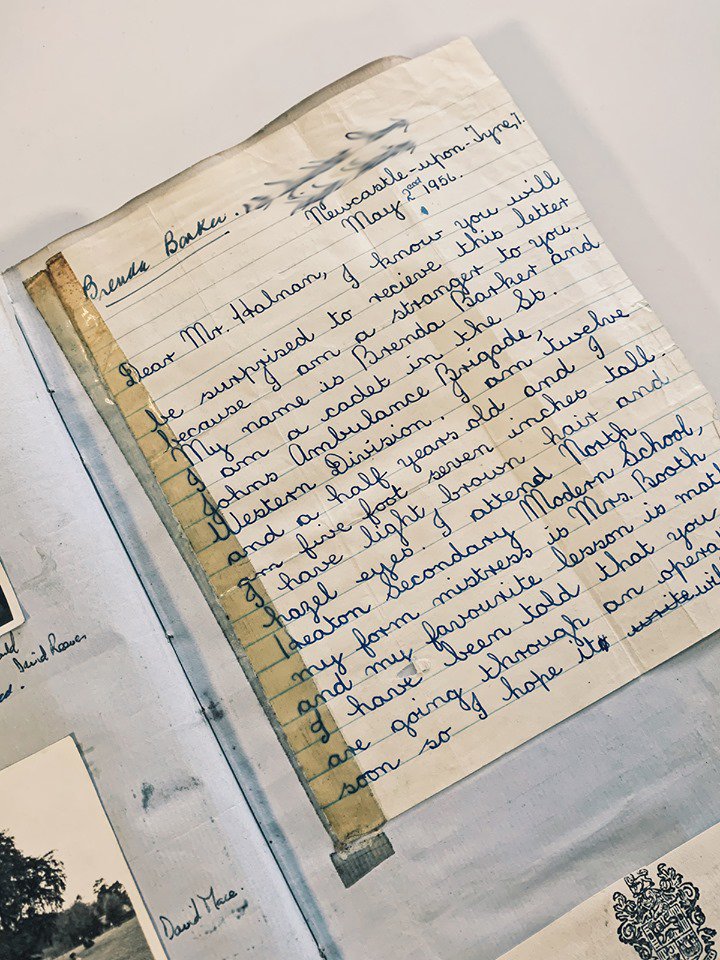 Brenda Barker.
Newcastle-upon-Tyne, 7.
May 2nd 1956.
Dear Mr. Halnan, I know you will
be surprised to recieve this letter
because I am a stranger to you.
My name is Brenda Barker and
I am a cadet in the St.
Johns Ambulance Brigade,
Western Division. I am twelve
and a half years old and I
am five foot seven inches tall.
I have light brown hair and
hazel eyes. I attend North
Heaton Secondary Modern School,
my form mistress is Mrs. Booth
and my favourite lesson is mat
I have been told that you
are going through an operat
soon so I hope it write wil
David Reeves
David Mace.